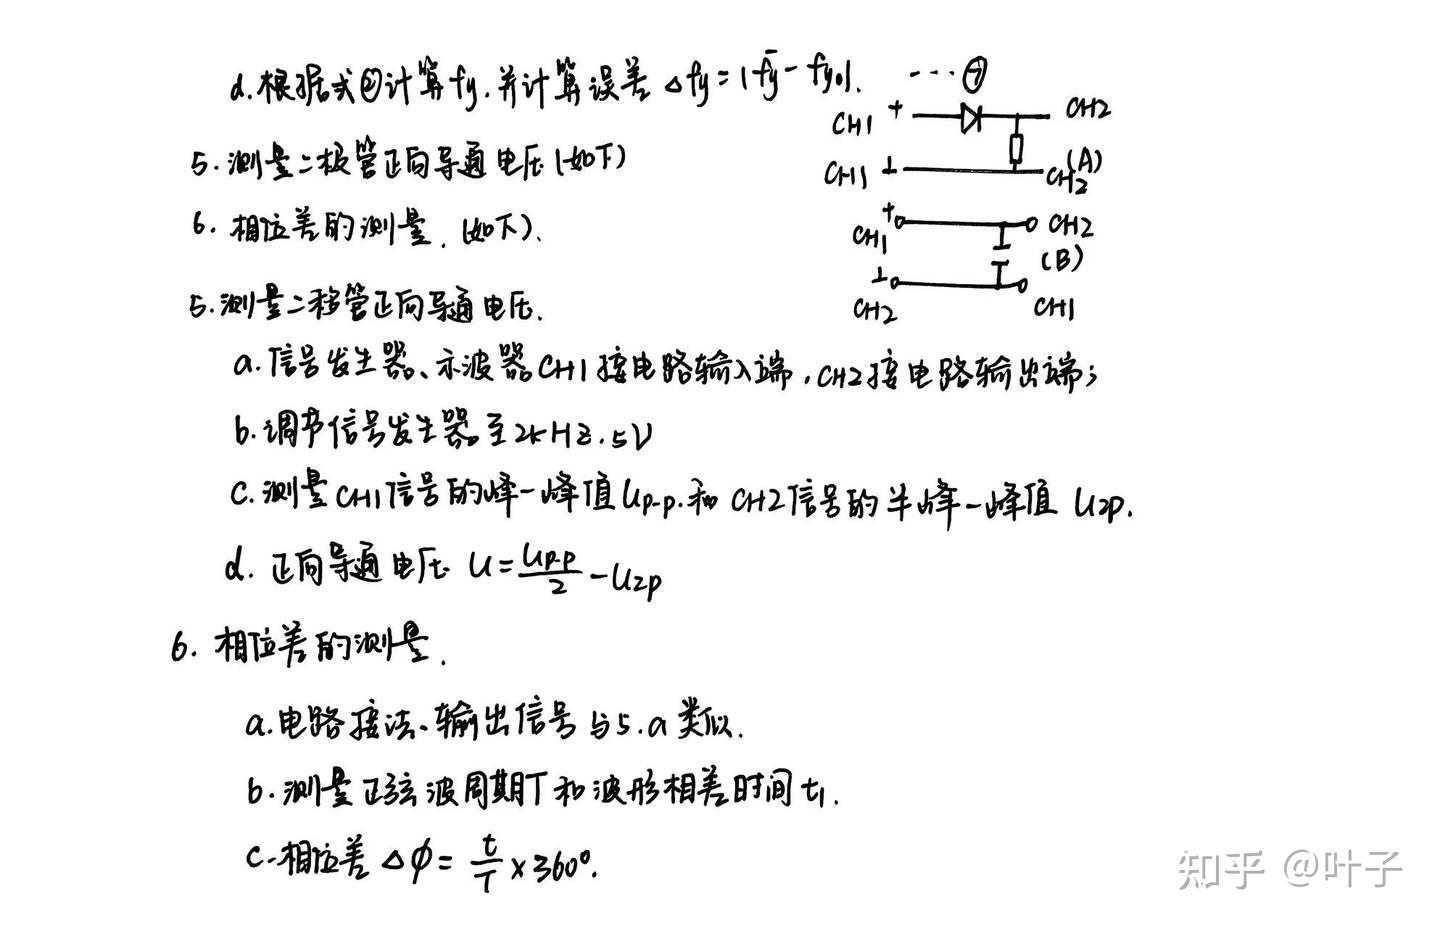 d.根据式②计算fy.并计算误差 Δfy=|f̄y-fy0|. ···⑦
CH1 + CH2
5.测量二极管正向导通电压(如下)
CH1 ⊥ CH2 (A)
6. 相位差的测量.(如下).
+ CH1 CH2
(B)
⊥ CH2 CH1
5.测量二极管正向导通电压.
a.信号发生器、示波器CH1接电路输入端,CH2接电路输出端;
b.调节信号发生器至2kHz.5V
c.测量CH1信号的峰-峰值Up-p.和CH2信号的半峰-峰值 U2p.
d. 正向导通电压 U=Up-p/2-U2p
6. 相位差的测量.
a.电路接法、输出信号与5.a类似.
b.测量正弦波周期T和波形相差时间t1.
c.相位差Δϕ=t/T×360°.
知乎 @叶子